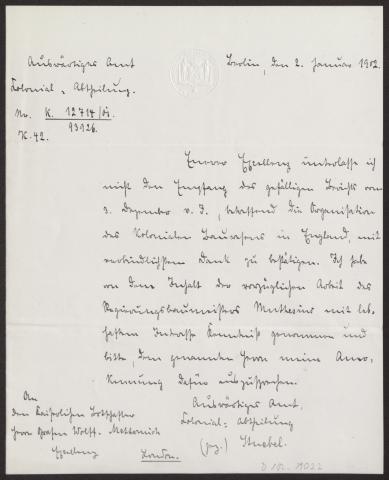 Auswärtiges Amt
Berlin, den 2. Januar 1902.
Colonial-Abtheilung.
No. K. 12714/01.
93126.
K. 42.
Euerer Exzellenz unterlasse ich
nicht den Empfang des gefälligen Berichts vom
3. Dezember v. J., betreffend die Organisation
des kolonialen Bauwesens in England, mit
verbindlichstem Dank zu bestätigen. Ich habe
von dem Inhalt der vorzüglichen Arbeit des
Regierungsbaumeisters Muthesius mit leb-
haftem Interesse Kenntniß genommen und
bitte, dem genannten Herrn meine Aner-
kennung dafür auszusprechen.
Auswärtiges Amt,
Colonial-Abtheilung
(gez.) Stuebel.
An
den Kaiserlichen Botschafter
Herrn Grafen Wolff-Metternich
Exzellenz
London.